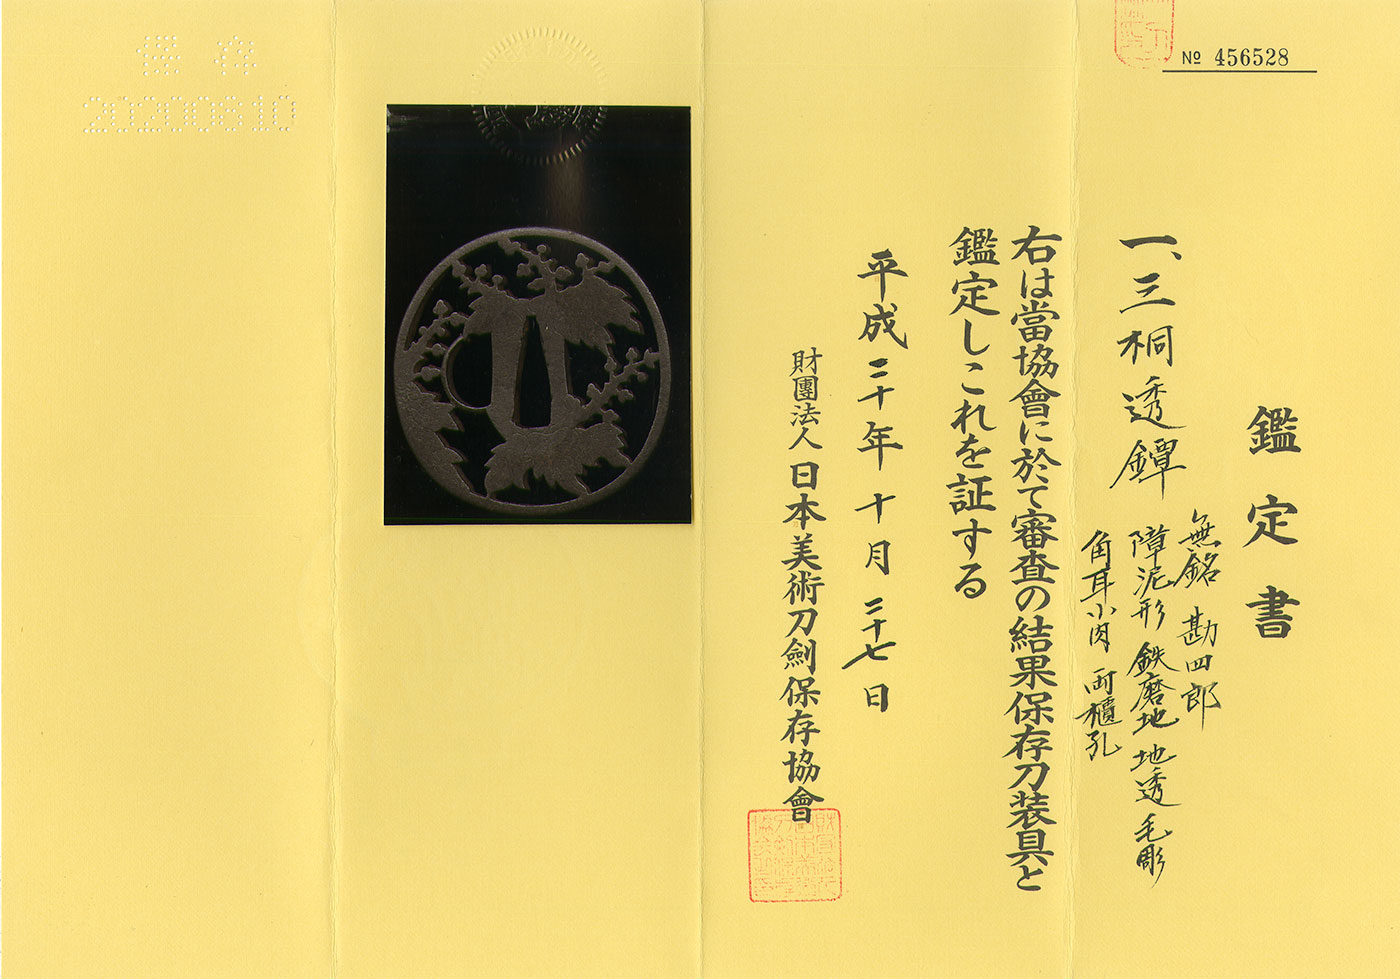 № 456528
鑑定書
一、三桐透鐔
無銘 勘四郎
障泥形 鉄磨地 地透 毛彫
角耳小肉 両櫃孔
右は當協會に於て審査の結果保存刀装具と
鑑定しこれを証する
平成二十年十月二十七日
財團法人日本美術刀劍保存協會
保存
20200810